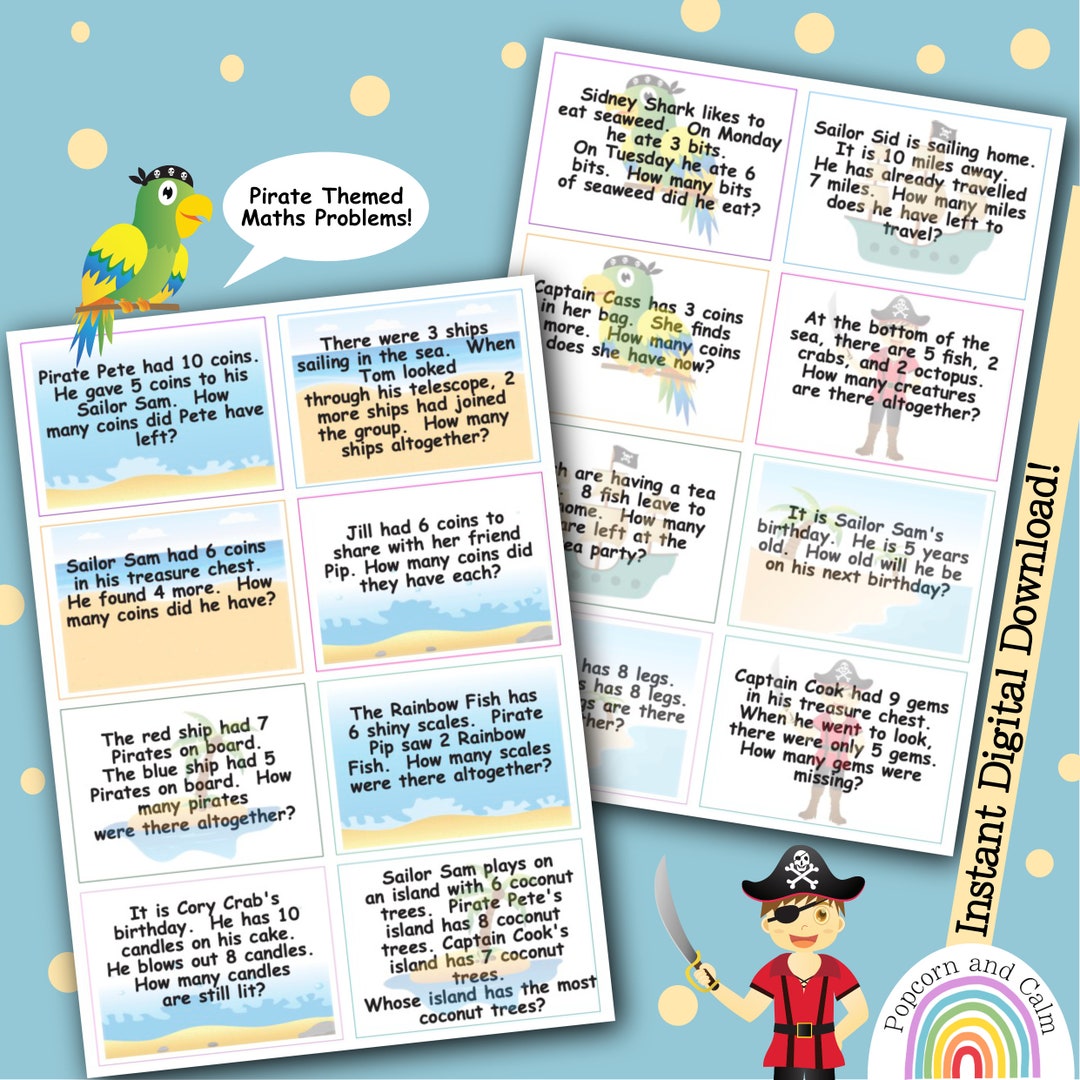 Pirate Themed
Maths Problems!
Pirate Pete had 10 coins.
He gave 5 coins to his
Sailor Sam. How
many coins did Pete have
left?
There were 3 ships
sailing in the sea. When
Tom looked
through his telescope, 2
more ships had joined
the group. How many
ships altogether?
Sailor Sam had 6 coins
in his treasure chest.
He found 4 more. How
many coins did he have?
Jill had 6 coins to
share with her friend
Pip. How many coins did
they have each?
The red ship had 7
Pirates on board.
The blue ship had 5
Pirates on board. How
many pirates
were there altogether?
The Rainbow Fish has
6 shiny scales. Pirate
Pip saw 2 Rainbow
Fish. How many scales
were there altogether?
It is Cory Crab's
birthday. He has 10
candles on his cake.
He blows out 8 candles.
How many candles
are still lit?
Sailor Sam plays on
an island with 6 coconut
trees. Pirate Pete's
island has 8 coconut
trees. Captain Cook's
island has 7 coconut
trees.
Whose island has the most
coconut trees?
Sidney Shark likes to
eat seaweed. On Monday
he ate 3 bits.
On Tuesday he ate 6
bits. How many bits
of seaweed did he eat?
Sailor Sid is sailing home.
It is 10 miles away.
He has already travelled
7 miles. How many miles
does he have left to
travel?
Captain Cass has 3 coins
in her bag. She finds
more. How many coins
does she have now?
At the bottom of the
sea, there are 5 fish, 2
crabs, and 2 octopus.
How many creatures
are there altogether?
are having a tea
8 fish leave to
How many
are left at the
party?
It is Sailor Sam's
birthday. He is 5 years
old. How old will he be
on his next birthday?
has 8 legs.
has 8 legs.
are there
Captain Cook had 9 gems
in his treasure chest.
When he went to look,
there were only 5 gems.
How many gems were
missing?
Instant Digital Download!
Popcorn and Calm